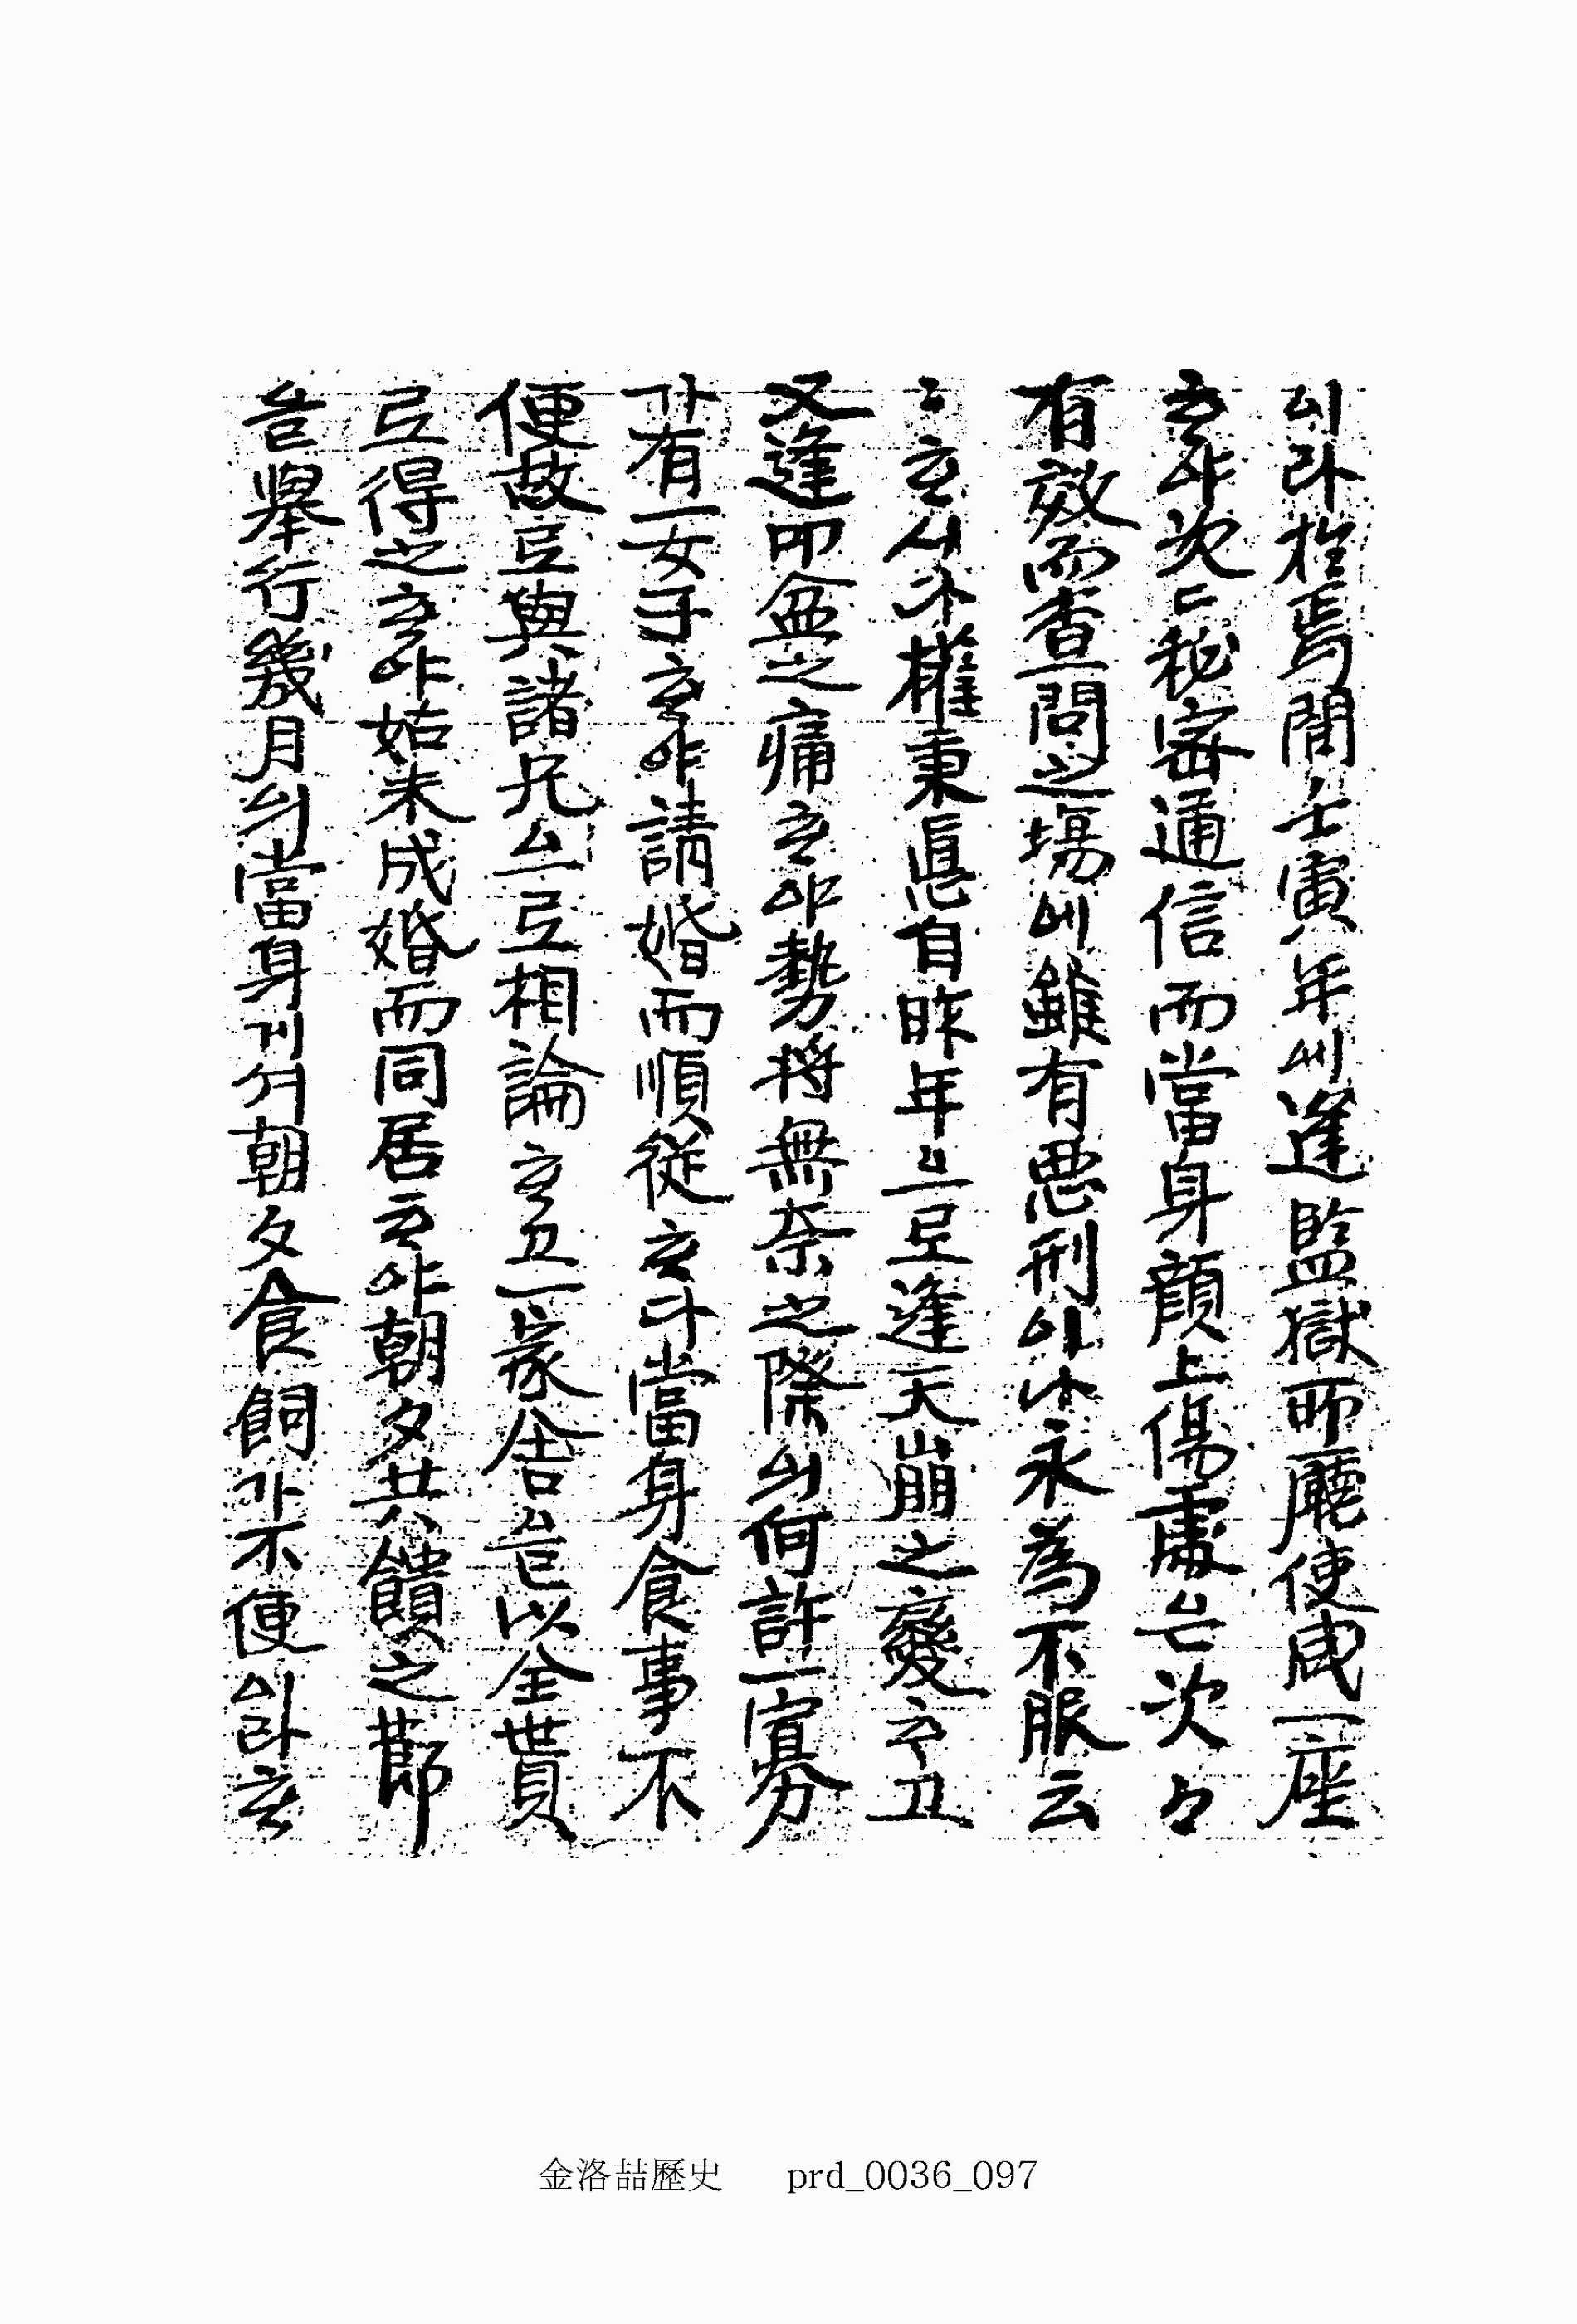 이라於焉間壬寅年에逢監獄所廳使成一座
하야次々秘密通信而當身顔上傷處는次々
有效而查問之場에雖有惡刑이나永為不服云
々하시다權秉悳自昨年으로逢天崩之變하고
又逢叩盆之痛하야勢將無奈之際에何許一寡
가有一女子하야請婚而順從하나當身食事不
便故로與諸兄으로相論하고一家舍을以全貰
로得之하야姑未成婚而同居하야朝夕共饋之節
을擧行幾月에當身게서朝夕食飼가不便이라하
金洛喆歷史 prd_0036_097